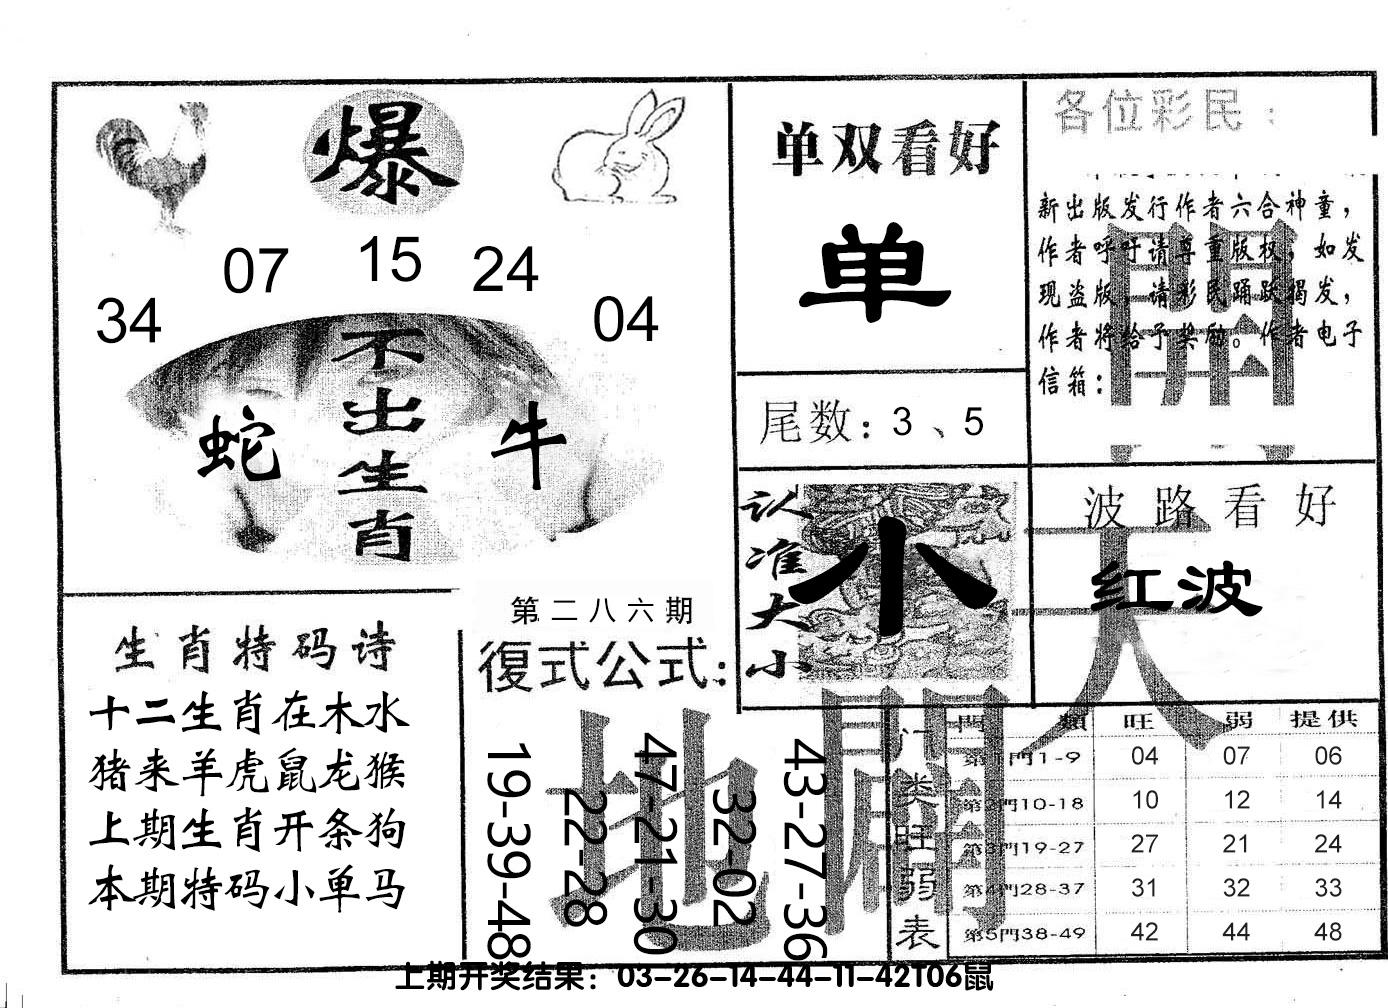 爆
07 15 24
34 04
不出生肖
蛇 牛
单双看好
单
尾数：3、5
各位彩民：
新出版发行作者六合神童，
作者呼吁请尊重版权，如发
现盗版，请彩民踊跃揭发，
作者将给予奖励。作者电子
信箱：
認准大小
小
波路看好
红波
生肖特码诗
十二生肖在木水
猪来羊虎鼠龙猴
上期生肖开条狗
本期特码小单马
第二八六期
復式公式：
19-39-48
22-28
47-21-30
32-02
43-27-36
天
開
地
闢
门类旺弱表
門類 旺 弱 提供
第1門1-9 04 07 06
第2門10-18 10 12 14
第3門19-27 27 21 24
第4門28-37 31 32 33
第5門38-49 42 44 48
上期开奖结果：03-26-14-44-11-42T06鼠